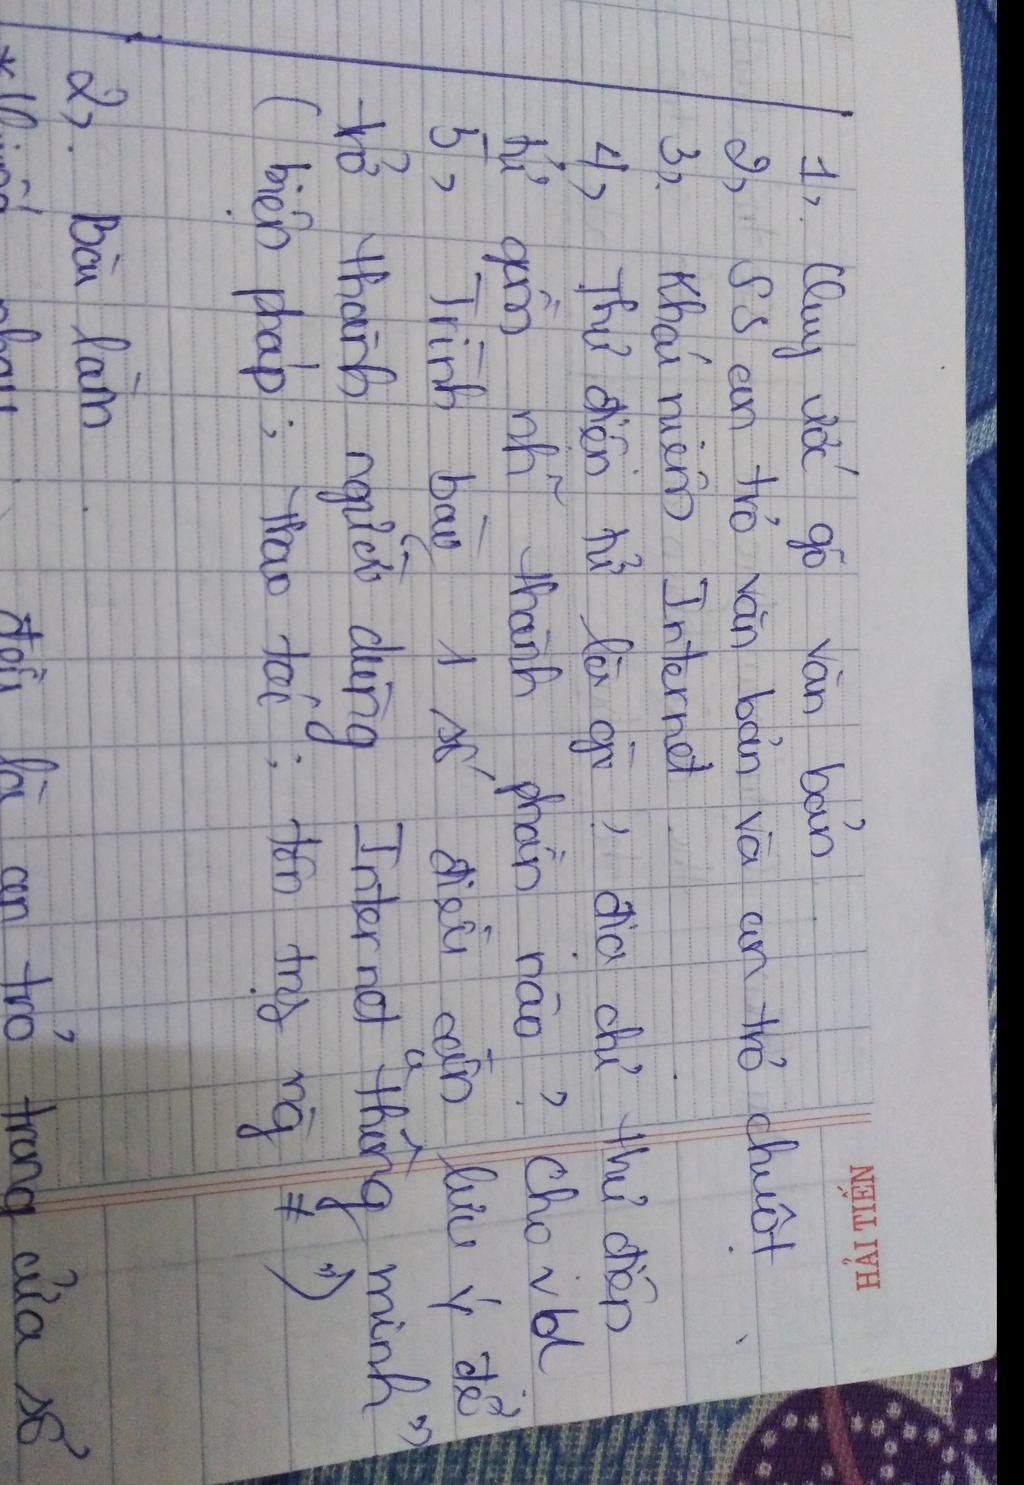 HẢI TIẾN
1, Quy tắc gõ văn bản
2, SS con trỏ văn bản và con trỏ chuột
3, Khái niệm Internet
4, Thư điện tử là gì, địa chỉ thư điện
tử gồm nh~ thành phần nào? Cho vd
5, Trình bày 1 số điều cần lưu ý để
trở thành người dùng Internet thông minh "
( biện pháp; thao tác; tôn trọng ng ≠ ")
2, Bài làm
đều là con trỏ trong cửa sổ